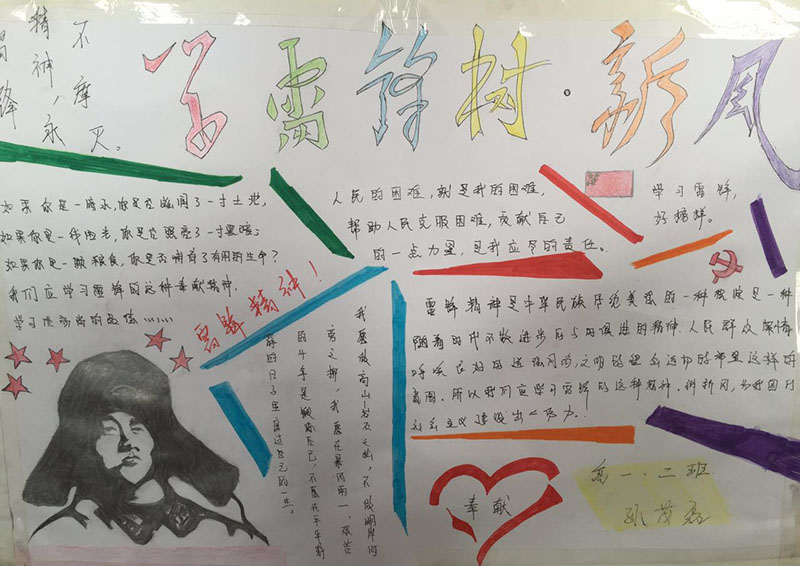 学雷锋树·新风
雷锋
精神永
不磨灭。
如果你是一滴水,你是否滋润了一寸土地,
如果你是一线阳光,你是否照亮了一寸黑暗;
如果你是一颗粮食,你是否哺育了有用的生命?
我们应学习雷锋的这种奉献精神,
学习他高尚的品德……
雷锋精神!
人民的困难,就是我的困难,
帮助人民克服困难,贡献自己
的一点力量,是我应尽的责任。
学习雷锋,
好榜样。
雷锋精神是中华民族传统美德的一种
随着时代不断进步与与时俱进的精神.人民群众
所以我们应学习雷锋的这种精神.
社会主义建设出一份力!
我愿做高山岩石之松,不做湖岸河
旁之柳,我愿在暴风雨
的斗争中 自己,不愿在平平静
静的日子里度过自己的一生。
奉献
高一·二班